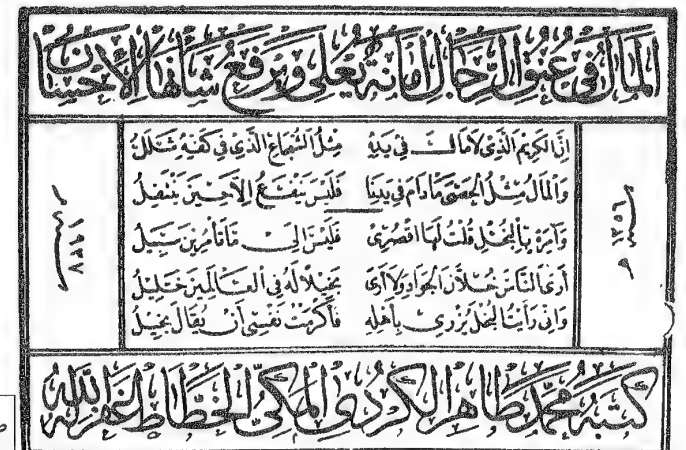 المَالُ فِى عُنُقِ الرِّجَالِ اَمَانَةٌ تُعْلَى وَيَرْفَعُ شَأْنَهَا الْإِحْسَانُ
سنة ١٣٥٦ هـ
اِنَّ الكَرِيْمَ الَّذِىْ لَامَالَ فِى يَدِهِ مِثْلُ الشُّجَاعِ الَّذِىْ فِى كَفِّهِ شَلَلُ
وَالْمَالُ مِثْلُ الْحَصَى مَادَامَ فِى يَدِنَا فَلَيْسَ يَنْفَعُ اِلَّاحِيْنَ يَنْتَقِلُ
وَآمِرَةٍ بِالْبُخْلِ قُلْتُ لَهَا اقْصُرِىْ فَلَيْسَ اِلَى مَاتَأْمُرِيْنَ سَبِيْلُ
أَرَى النَّاسَ خُلَّانَ الْجَوَادِ وَلَا أَرَى بَخِيْلًا لَهُ فِى الْعَالَمِيْنَ خَلِيْلُ
وَانِّى رَأَيْتُ الْبُخْلَ يُزْرِىْ بِاَهْلِهِ فَاَكْرَمْتُ نَفْسِىْ اَنْ يُقَالَ بَخِيْلُ
سنة ١٩٣٧ م
كَتَبَهُ مُحَمَّد طَاهِر الْكُرْدِى الْمَكِّىُّ الْخَطَّاطُ غَفَرَ اللّٰهُ لَهُ